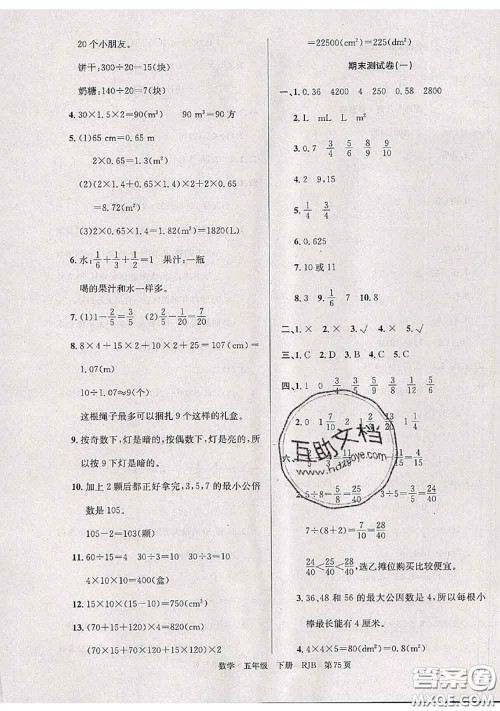 20 个小朋友。
饼干:300÷20=15(块)
奶糖:140÷20=7(块)
4. 30×1.5×2=90(m²) 90 m³=90 方
5. (1)65 cm=0.65 m
2×0.65=1.3(m²)
(2)(2×1.4+0.65×1.4)×2+2×0.65
=8.72(m²)
(3)2×0.65×1.4=1.82(m³)=1820(L)
6. 水:1/6+1/3+1/2=1 果汁:一瓶
喝的果汁和水一样多。
7. (1)1-2/5=3/5 (2)3/5-1/4=7/20
8. 8×4+15×2+10×2+25=107(cm)=
1.07(m)
10÷1.07≈9(个)
这根绳子最多可以捆扎 9 个这样的礼盒。
9. 按奇数下,灯是暗的,按偶数下,灯是亮的,所
以按 9 下灯是暗的。
10. 加上 2 颗后都正好拿完,3,5,7 的最小公倍
数是 105。
105-2=103(颗)
11. 60÷15=4 30÷3=10 30÷3=10
4×10×10=400(盒)
12. 15×10×(15-5-5)=750(cm³)
13. (70+15+70+15)×2×60=
(70+15+120)×2×
=22500(cm²)=225(dm²)
期末测试卷(一)
一、1. 0.36 4200 4 250 0.58 2800
2. L mL L m³
3. 0.7 3/4 5/6 8/9 9/10
4. 2 9,15
5. 1/4 3/4
6. 0.625
7. 10 或 11
8. 3 9. 1/6 7 10. 8
二、1. × 2. × 3. √ 4. × 5. √
三、1. C 2. D 3. C 4. B 5. A
四、1. 1 0 3/4 5/8
2. 0 1 7/10
六、1.
2. 5÷8=5/8=25/40
7÷(8+2)=7/10=28/40
24/40<25/40<28/40 选乙摊位购买比较便宜。
3. 36、48 和 56 的最大公因数是 4,所以每根小
棒最长能有 4 厘米。
4. 4×4×5=80
互助文档
www.hdzuoye.com
数学 五年级 下册 RJB 第75页
答案圈
MXQE.COM